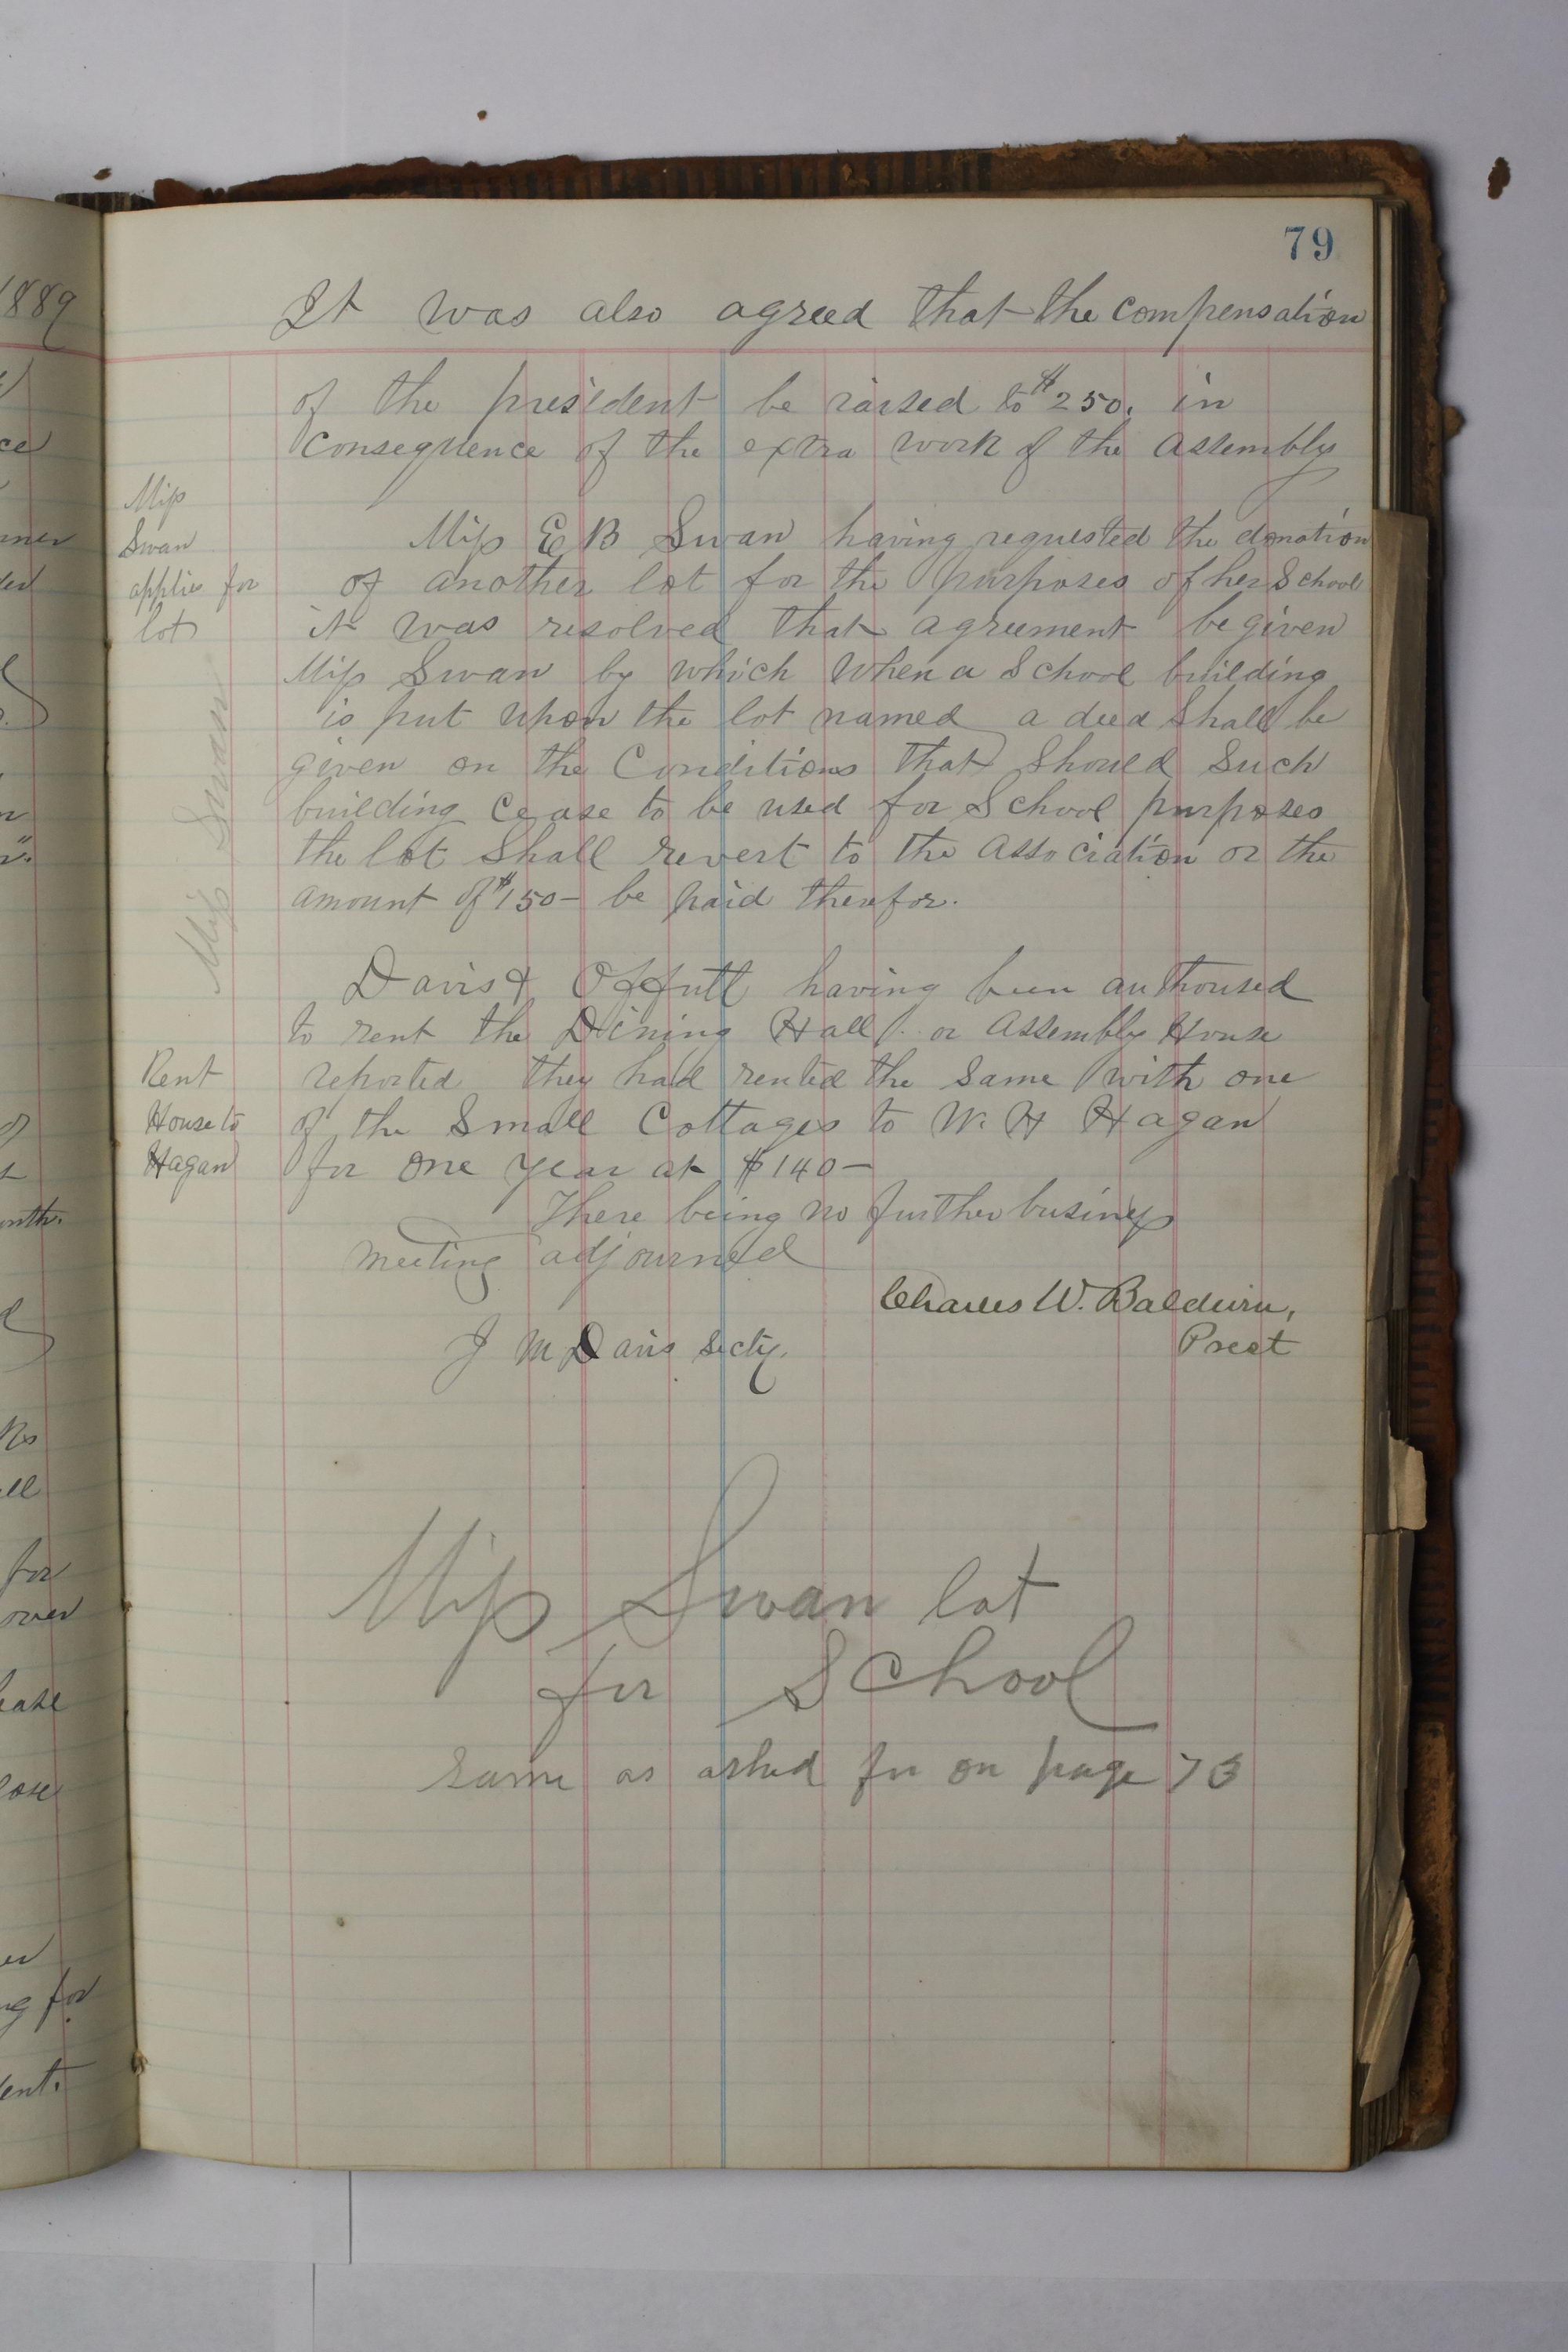 79
It was also agreed that the compensation
of the president be raised to $250. in
consequence of the extra work of the assembly
Miss
Swan
applies for
lot
Miss E B Swan having requested the donation
of another lot for the purposes of her School
it was resolved that agreement be given
Miss Swan by which when a School building
is put upon the lot named a deed shall be
given on the Conditions that Should Such
building Cease to be used for School purposes
the lot Shall revert to the Association or the
amount of $150- be paid therefor.
Miss Swan
Davis & Offutt having been authorised
to rent the Dining Hall or Assembly House
Rent
House to
Hagan
reported they had rented the Same with one
of the Small Cottages to W. H Hagan
for one year at $140-
There being no further business
meeting adjourned
Charles W. Baldwin,
Prest
J M Davis Secty.
Miss Swan lot
for School
same as asked for on page 73
1889
ce
for
over
ease
ng for
ent.